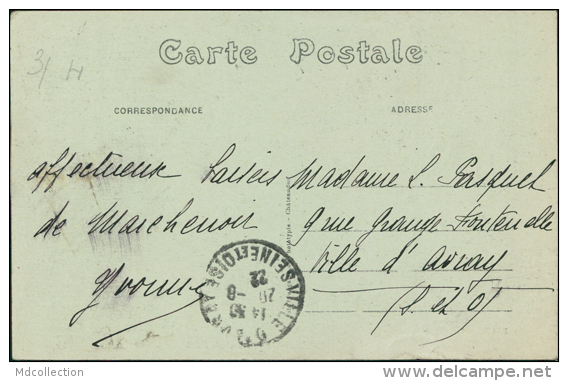 3/ H
Carte Postale
CORRESPONDANCE
ADRESSE
affectueux baisers
de Marchenoir
Yvonne
Madame L. Pasquet
9 rue Grange-Fontenelle
Ville d'Avray
(S. et O)
SEINE ET OISE
14 30
20 -8
22
Mdcollection
www.delcampe.net